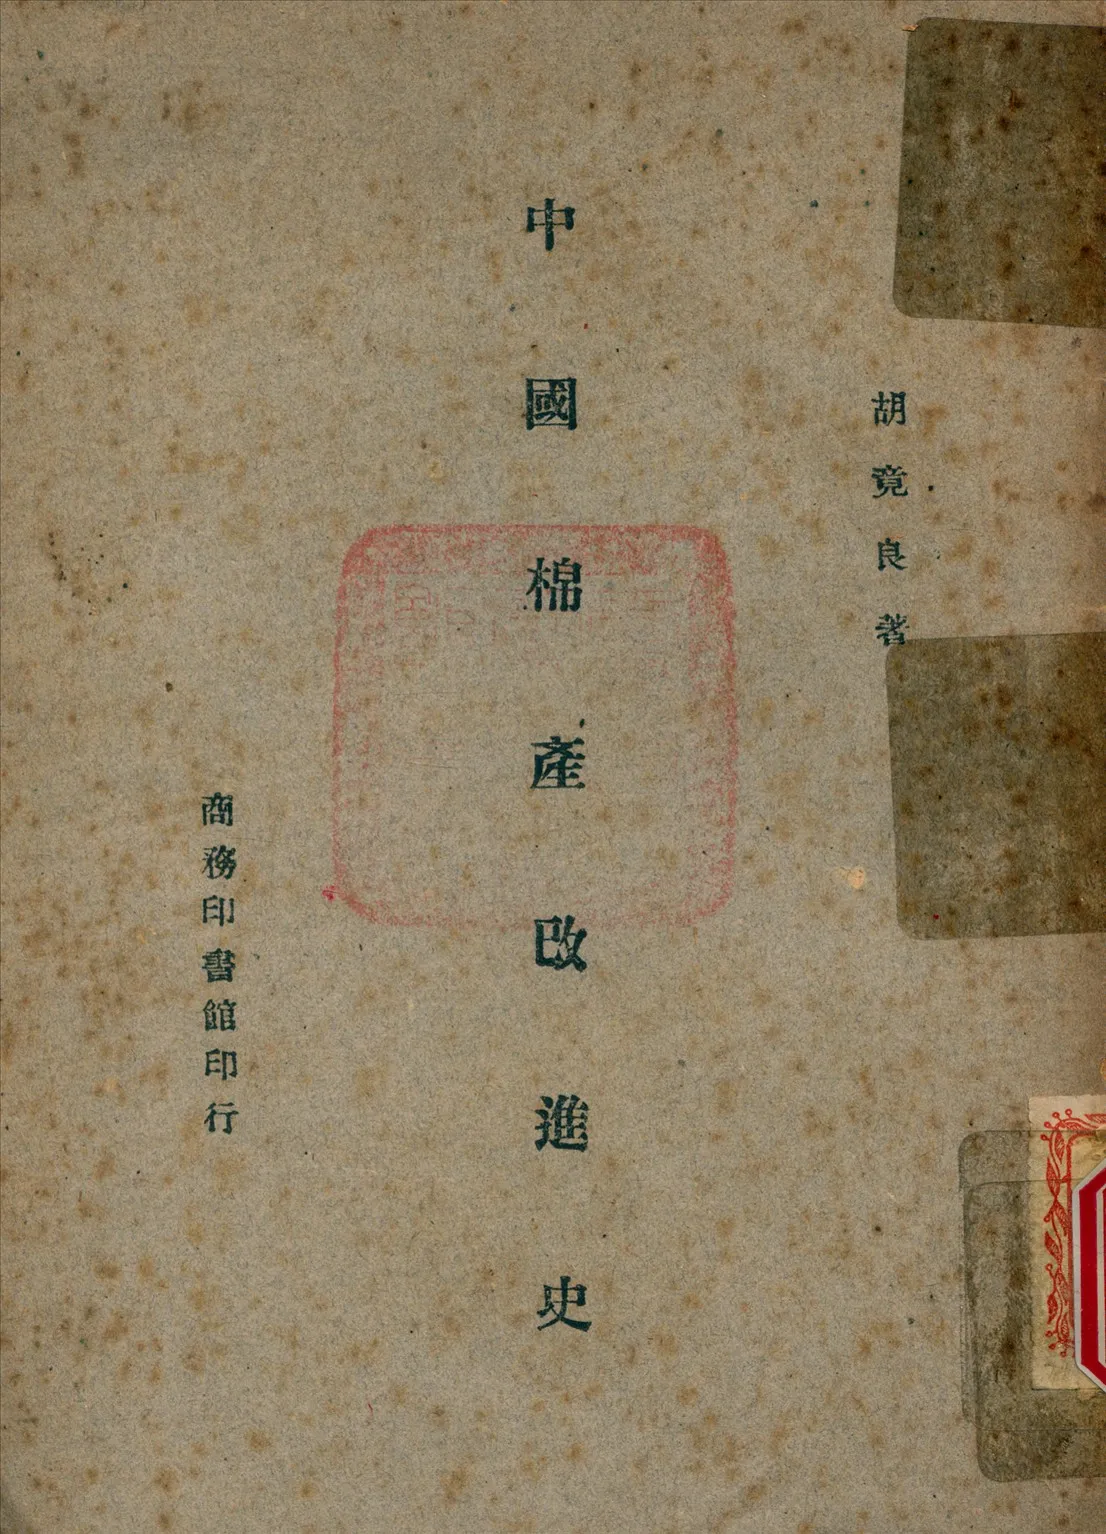 胡竟良著
中國棉產改進史
商務印書館印行